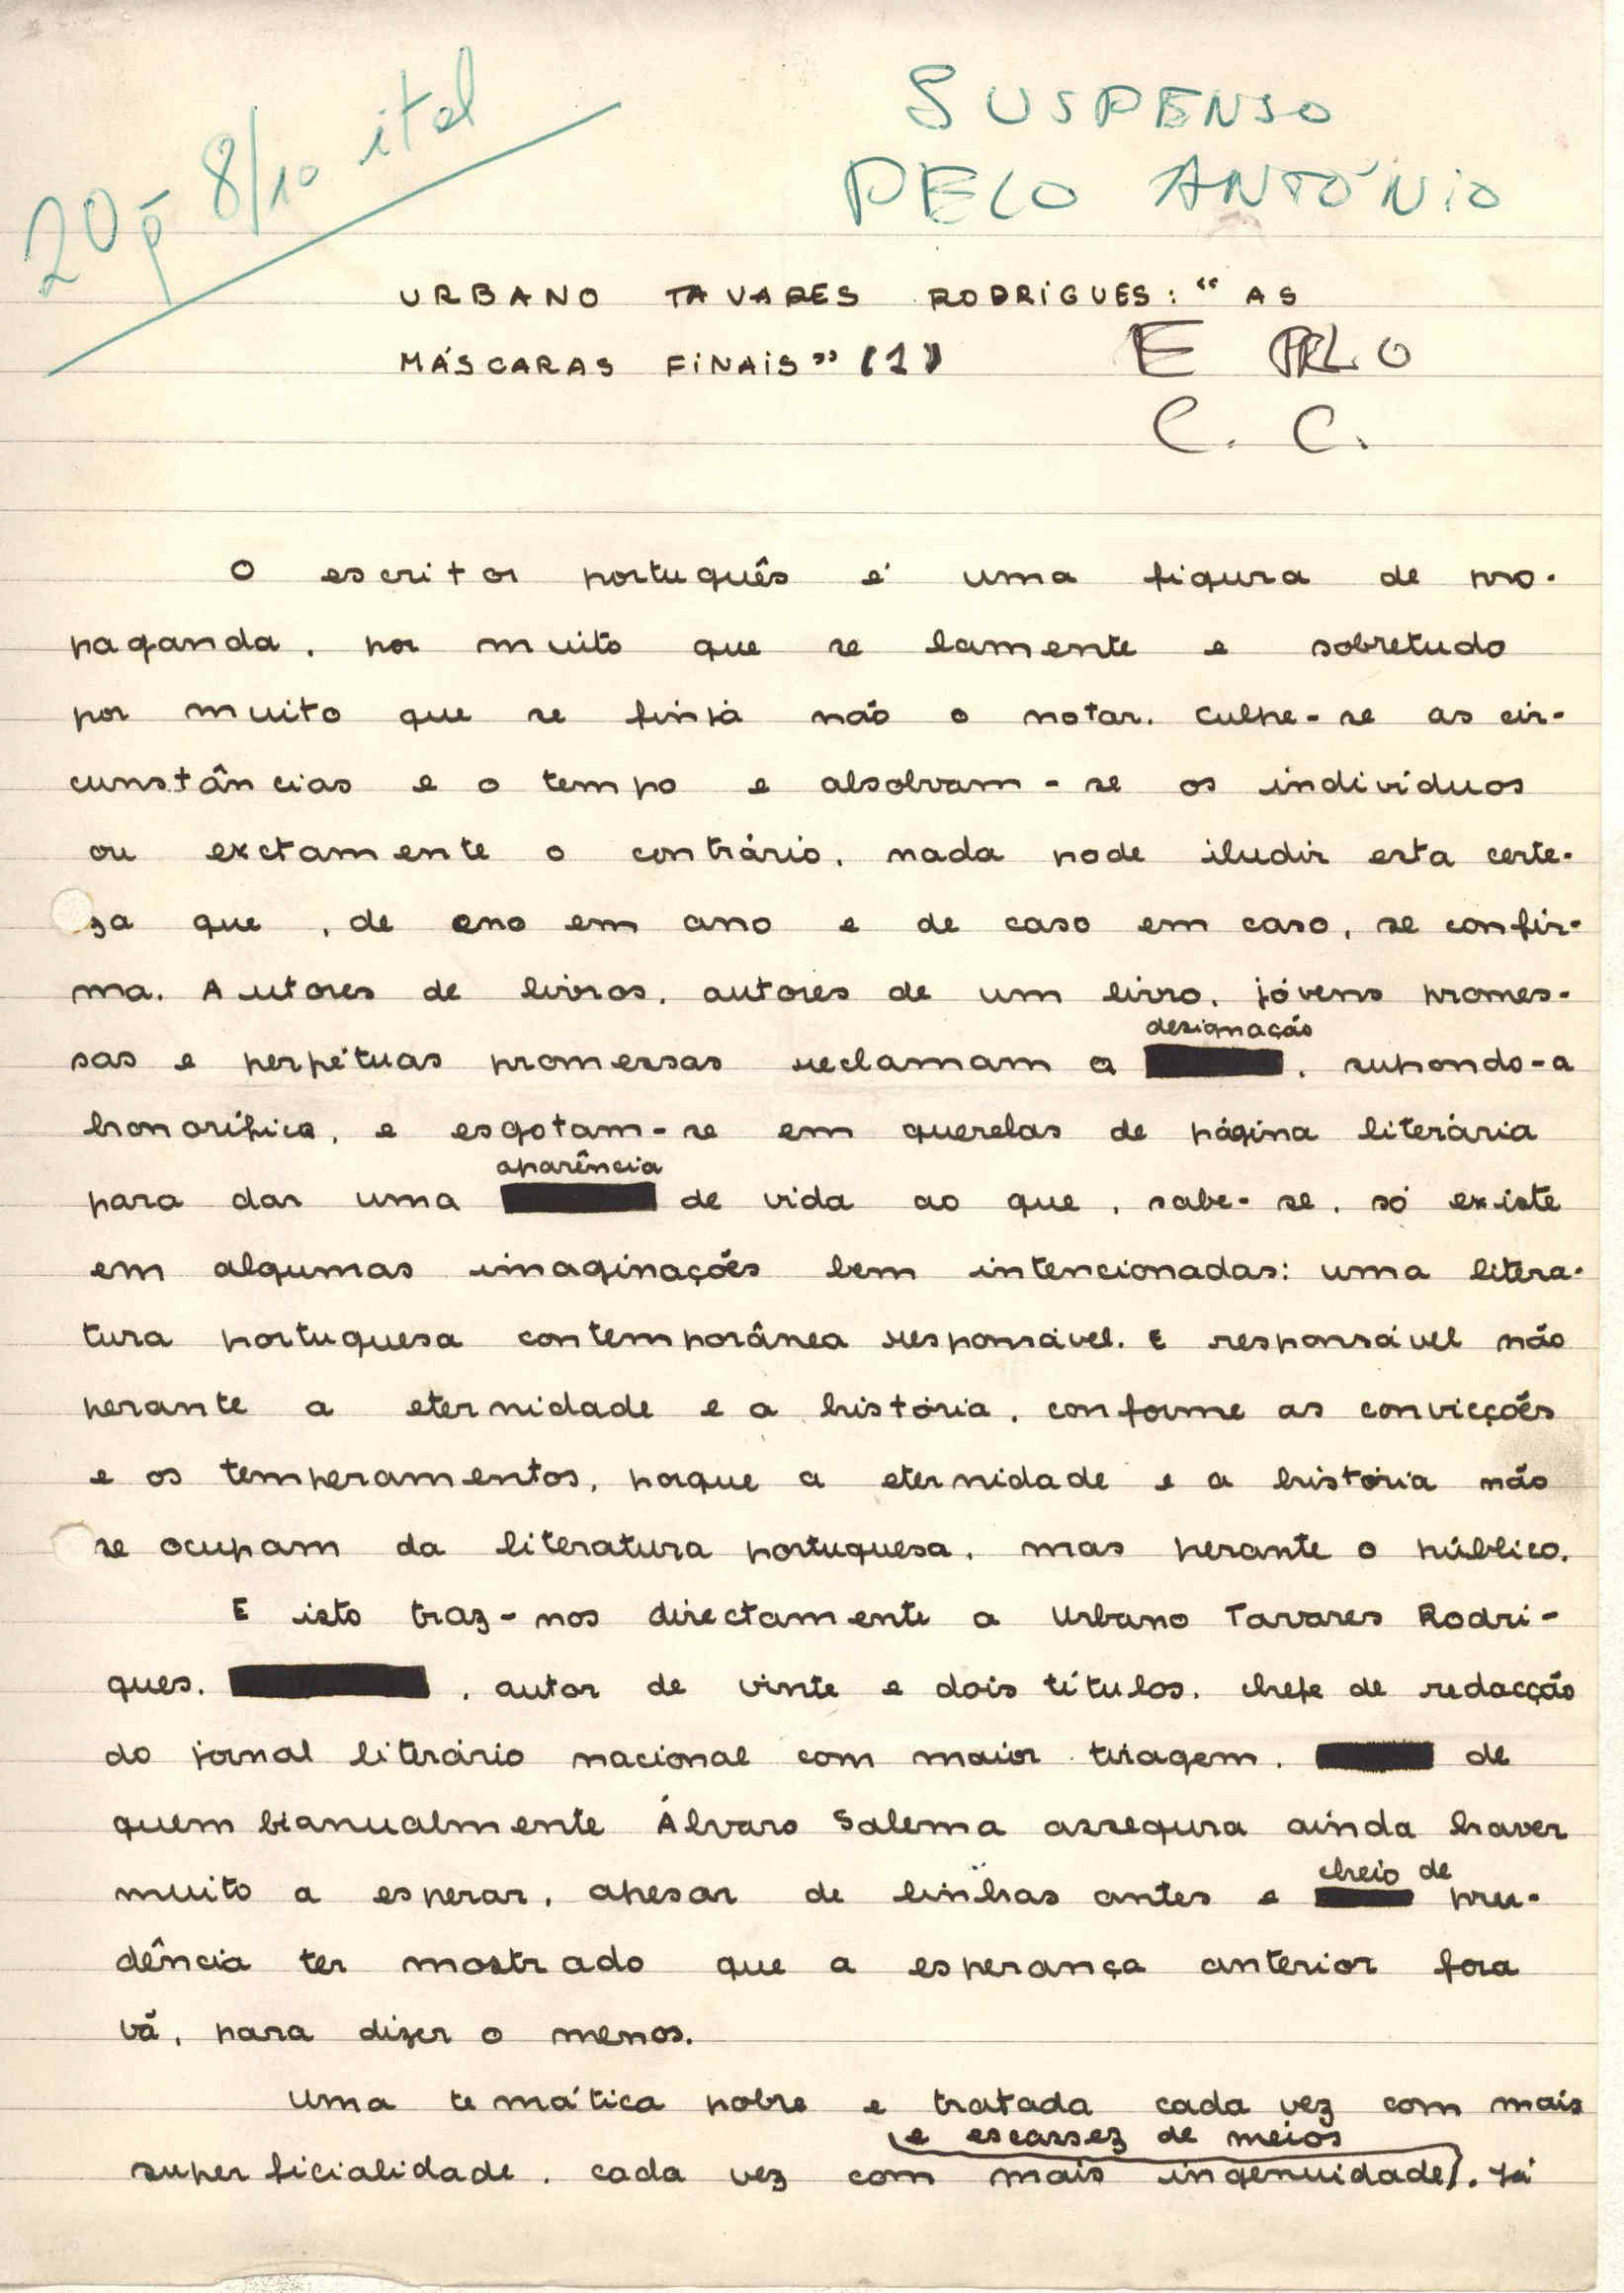 20 p 8/10 ital
SUSPENSO
PELO ANTÓNIO
URBANO TAVARES RODRIGUES: "AS
MÁSCARAS FINAIS" (1)
E PELO
C. C.
O escritor português é uma figura de pro-
paganda, por muito que se lamente e sobretudo
por muito que se finja não o notar. Culpe-se as cir-
cunstâncias e o tempo e absolvam-se os indivíduos
ou exctamente o contrário, nada pode iludir esta certe-
za que, de ano em ano e de caso em caso, se confir-
ma. Autores de livros, autores de um livro, jóvens promes-
designação
sas e perpétuas promessas reclamam a , supondo-a
honorífica, e esgotam-se em querelas de página literária
aparência
para dar uma de vida ao que, sabe-se, só existe
em algumas imaginações bem intencionadas: uma litera-
tura portuguesa contemporânea responsável. E responsável não
perante a eternidade e a história, conforme as convicções
e os temperamentos, porque a eternidade e a história não
se ocupam da literatura portuguesa, mas perante o público.
E isto traz-nos directamente a Urbano Tavares Rodri-
gues. , autor de vinte e dois títulos, chefe de redacção
do jornal literário nacional com maior tiragem, de
quem bianualmente Álvaro Salema assegura ainda haver
cheio de
muito a esperar, apesar de linhas antes e pru-
dência ter mostrado que a esperança anterior fora
vã, para dizer o menos.
Uma temática pobre e tratada cada vez com mais
e escassez de meios
superficialidade, cada vez com mais ingenuidade. Já